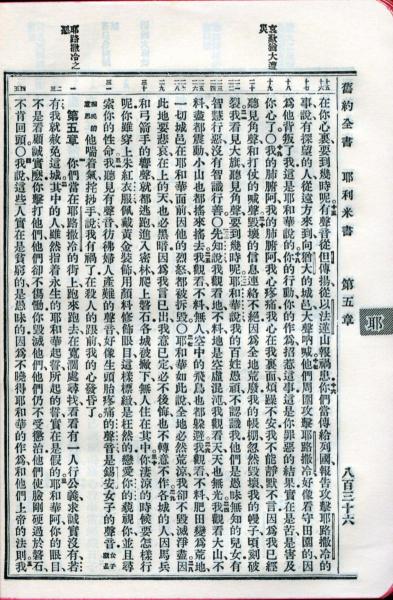 舊約全書 耶利米書 第五章 八百三十六
耶
在你心裏要到幾時呢有聲音從但傳揚從以法蓮山報禍患你們當傳給列國報告攻擊耶路撒冷的
事說有探望的人從遠方來到向猶大的城邑大聲吶喊他們周圍攻擊耶路撒冷好像看守田園的因
為他背叛了我這是耶和華說的你的行動你的作為招惹這事這是你罪惡的結果實在是苦是害及
你心了○我的肺腑阿我的肺腑阿我心疼痛我心在我裏面煩躁不安我不能靜默不言因為我已經
聽見角聲和打仗的喊聲毀壞的信息連絡不絕因為全地荒廢我的帳棚忽然毀壞我的幔子頃刻破
裂我看見大旗聽見角聲要到幾時呢耶和華說我的百姓愚頑不認識我他們是愚昧無知的兒女有
智慧行惡沒有智識行善○先知說我觀看地不料地是空虛混沌我觀看天天也無光我觀看大山不
料盡都震動小山也都搖來搖去我觀看不料無人空中的飛鳥也都躲避我觀看不料肥田變為荒地
一切城邑在耶和華面前因他的烈怒都被拆毀○耶和華如此說全地必然荒涼我卻不毀滅淨盡因
此地要悲哀在上的天也必黑暗因為我言已出我意已定必不後悔也不轉意不作各城的人因馬兵
和弓箭手的響聲就都逃跑進入密林爬上磐石各城被撇下無人住在其中你淒涼的時候要怎樣行
呢你雖穿上朱紅衣服佩戴黃金裝飾用顏料修飾眼目這樣標緻是枉然的戀愛你的藐視你並且尋
索你的性命我聽見有聲音彷彿婦人產難的聲音好像生頭胎疼痛的聲音是錫安女子的聲音
他喘着氣挓挲手說我有禍了在殺人的跟前我的心發昏了
第五章 你們當在耶路撒冷的街上跑來跑去在寬濶處尋找看看有一人行公義求誠實沒有若
有我就赦免這城其中的人雖然指着永生的耶和華起誓所起的誓實在是假的耶和華阿你的眼目
不是看顧誠實麼你擊打他們他們卻不傷慟你毀滅他們他們仍不受懲治他們使臉剛硬過於磐石
不肯回頭○我說這些人實在是貧窮的是愚昧的因為不曉得耶和華的作為和他們上帝的法則我